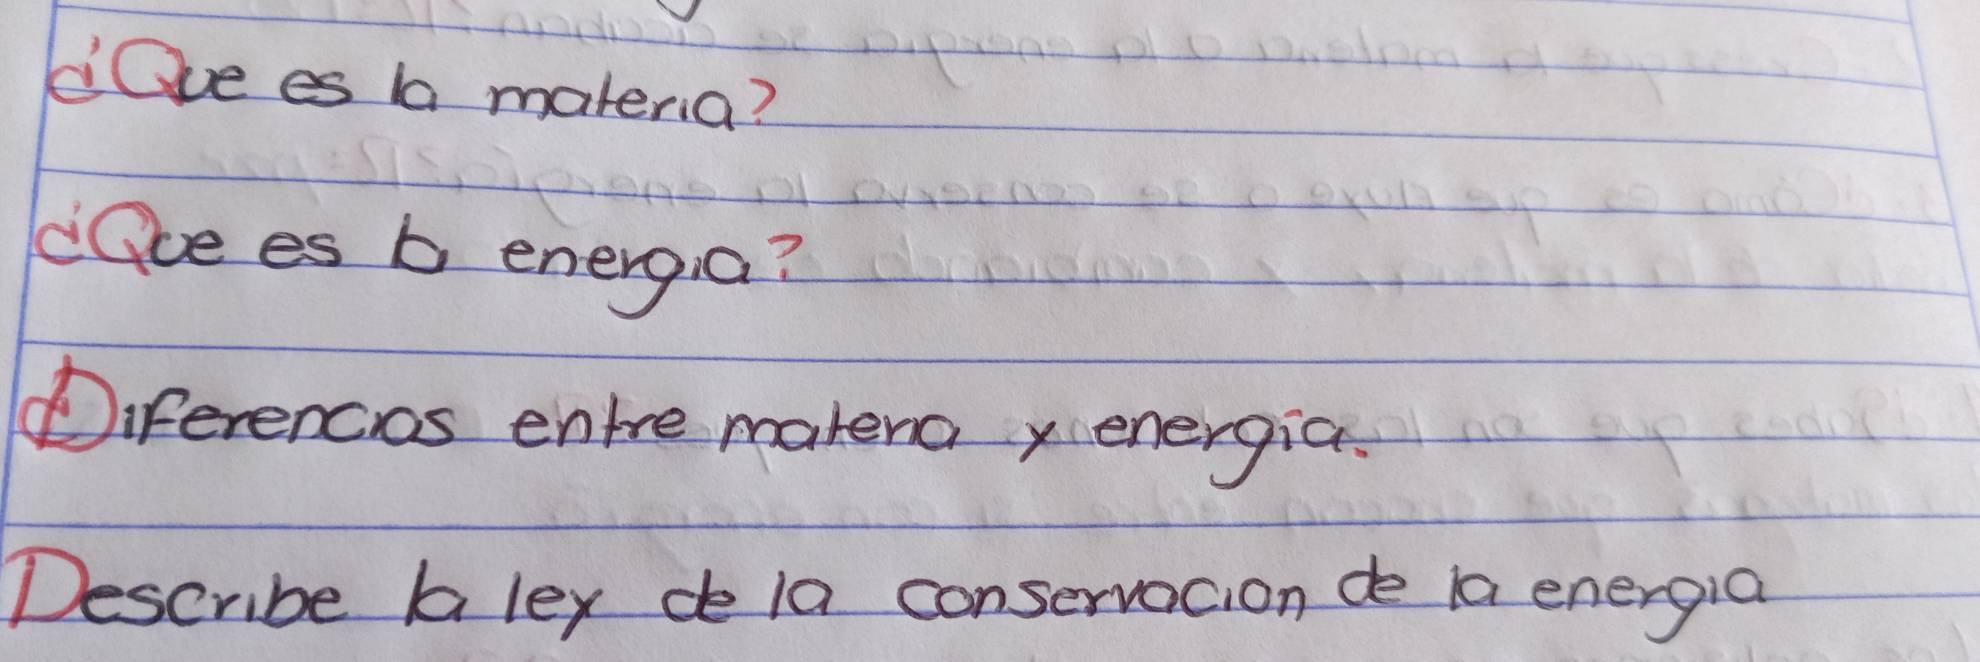 ¿Que es la materia?
¿Que es la energia?
Diferencias entre materia y energía.
Describe la ley de la conservacion de la energia